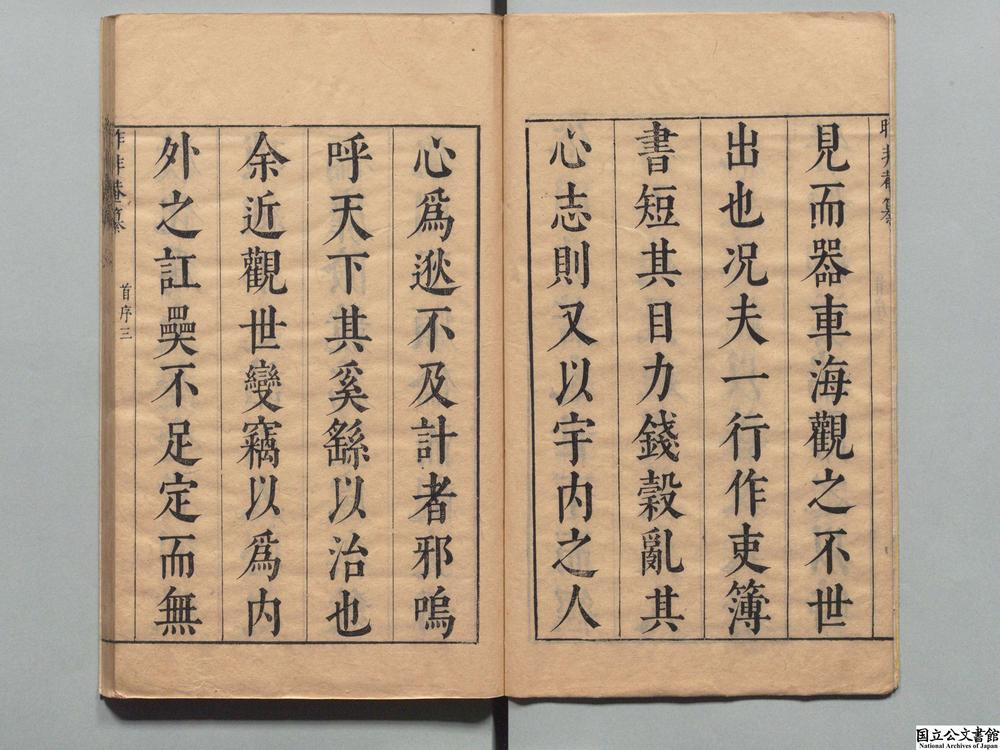 見而器車海觀之不世
出也况夫一行作吏簿
書短其目力錢穀亂其
心志則又以宇内之人
心爲逖不及計者邪嗚
呼天下其奚繇以治也
余近觀世變竊以爲内
外之訌㒹不足定而無
首序三
国立公文書館
National Archives of Japan